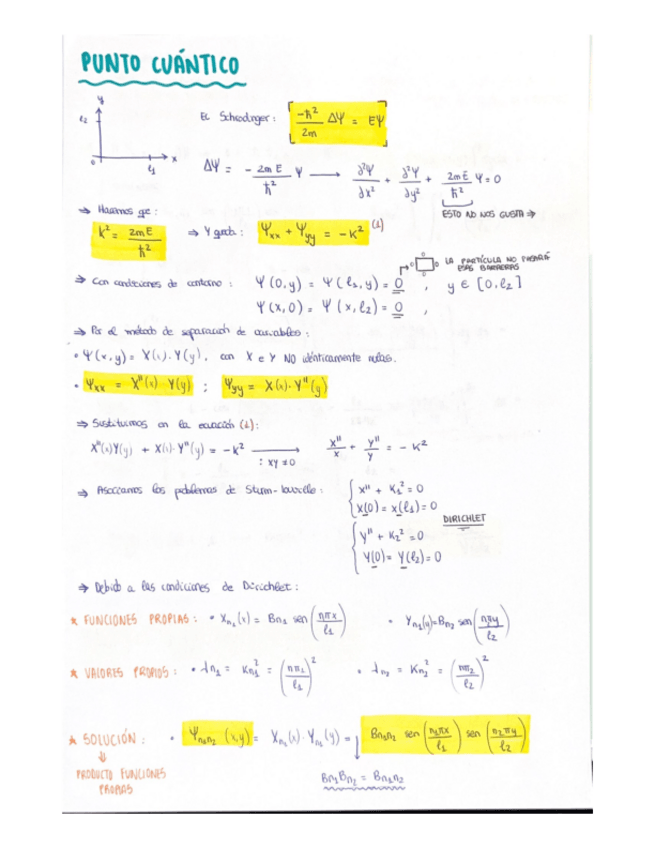 PUNTO CUÁNTICO
y
l₂
0
l₁
x
Ec Schrodinger: -ħ²/2m ΔΨ = EΨ
ΔΨ = - 2mE/ħ² Ψ ⟶ ∂²Ψ/∂x² + ∂²Ψ/∂y² + 2mE/ħ² Ψ = 0
ESTO NO NOS GUSTA ⇒
⇒ Hacemos que:
k² = 2mE/ħ² ⇒ Y queda: Ψxx + Ψyy = -K² (1)
LA PARTÍCULA NO PASARÁ
ESAS BARRERAS
⇒ Con condiciones de contorno: Ψ(0,y) = Ψ(l₁,y) = 0 , y ∈ [0,l₂]
Ψ(x,0) = Ψ(x,l₂) = 0 ,
⇒ Por el método de separación de variables:
• Ψ(x,y) = X(x)·Y(y), con X e Y NO idénticamente nulas.
• Ψxx = X''(x)·Y(y) ; Ψyy = X(x)·Y''(y)
⇒ Sustituimos en la ecuación (1):
X''(x)Y(y) + X(x)·Y''(y) = -K² ⟶ X''/X + Y''/Y = -K²
: XY ≠ 0
⇒ Asociamos los problemas de Sturm-Liouville: { X'' + K₁² = 0
X(0) = X(l₁) = 0
DIRICHLET
{ Y'' + K₂² = 0
Y(0) = Y(l₂) = 0
⇒ Debido a las condiciones de Dirichlet:
* FUNCIONES PROPIAS: • Xn₁(x) = Bn₁ sen(nπx/l₁) • Yn₂(y) = Bn₂ sen(nπy/l₂)
* VALORES PROPIOS: • λn₁ = Kn₁² = (nπ₁/l₁)² • λn₂ = Kn₂² = (nπ₂/l₂)²
* SOLUCIÓN: • Ψn₁n₂ (x,y) = Xn₁(x)·Yn₂(y) = Bn₁n₂ sen(n₁πx/l₁) sen(n₂πy/l₂)
⇓
PRODUCTO FUNCIONES
PROPIAS
Bn₁Bn₂ = Bn₁n₂